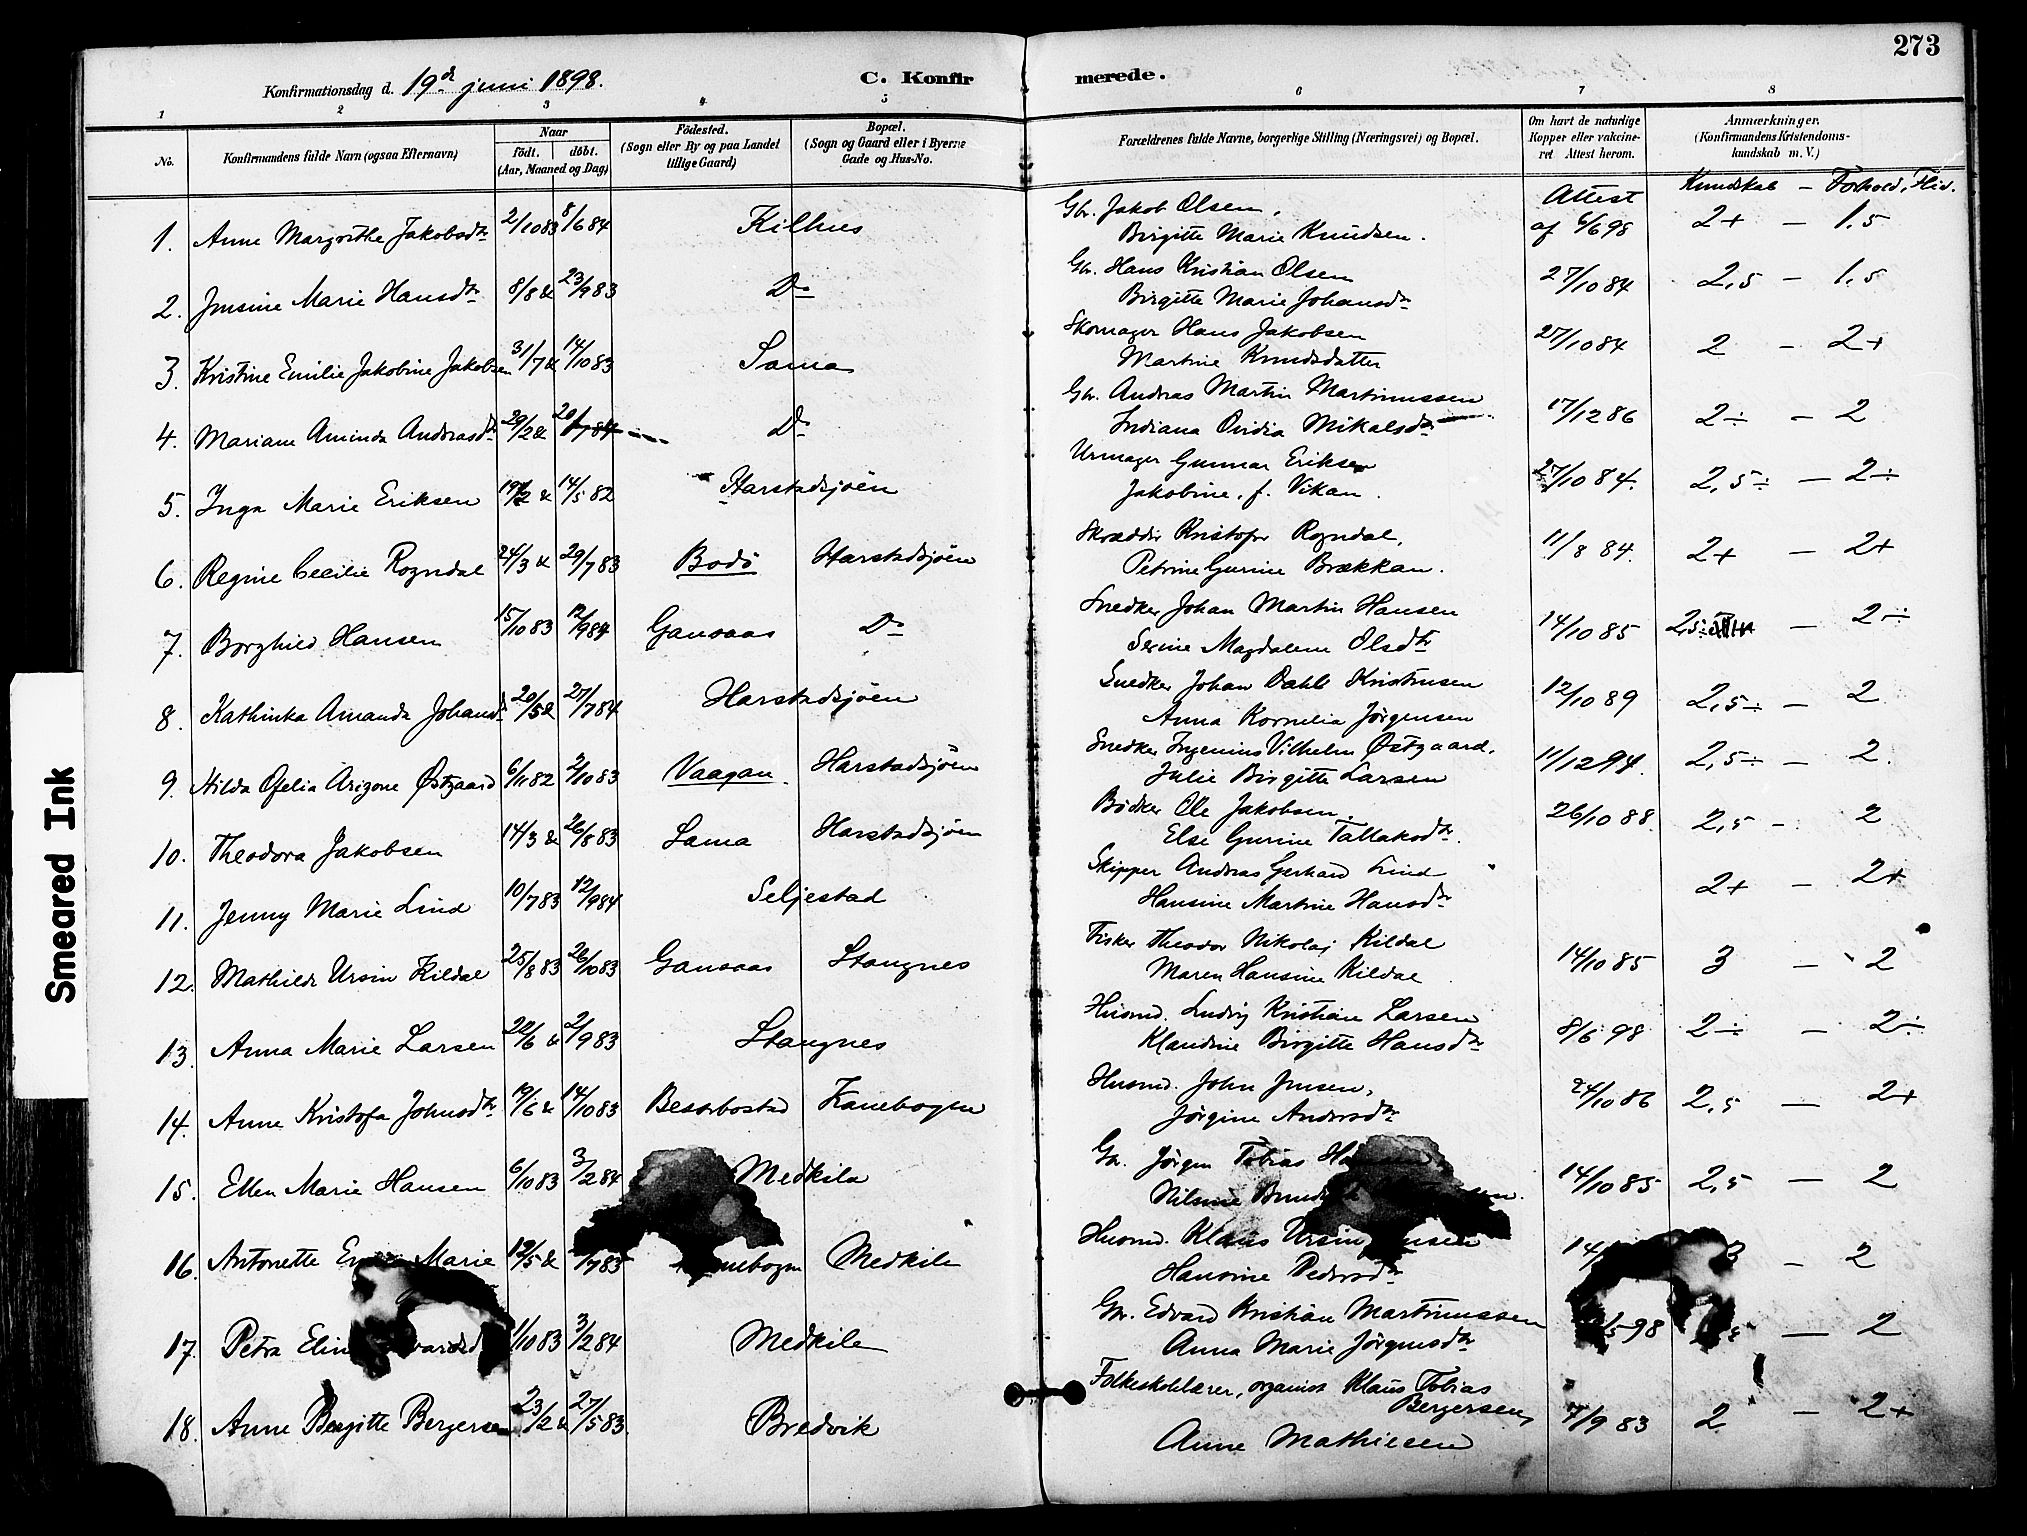 273
Konfirmationsdag d. 19de juni 1898.
C. Konfirmerede.
1 2 3 4 5 6 7 8
No.
Konfirmandens fulde Navn (ogsaa Efternavn)
Naar
födt. döbt.
(Aar, Maaned og Dag)
Födested.
(Sogn eller By og paa Landet
tillige Gaard)
Bopæl.
(Sogn og Gaard eller i Byerne
Gade og Hus-No.
Forældrenes fulde Navne, borgerlige Stilling (Næringsvei) og Bopæl.
Om havt de naturlige
Kopper eller vakcine-
ret Attest herom.
Anmærkninger.
(Konfirmandens Kristendoms-
kundskab m. V.)
Kundskab – Forhold, Flid.
1. Anne Margrithe Jakobsdtr 2/10 83 8/6 84 Kilhus Gbr. Jakob Olsen, Attest 2+ – 1,5
Birgitte Marie Knudsen. af 6/6 98
2. Jensine Marie Hansdtr 8/8 & 23/9 83 Do Gbr. Hans Kristian Olsen 27/10 84 2,5 – 1,5
Birgitte Marie Johansdtr
3. Kristine Emilie Jakobine Jakobsen 31/7 & 14/10 83 Sama Skomager Hans Jakobsen 27/10 84 2 – 2+
Martine Knudsdatter
4. Mariane Aminda Andreasdtr 29/2 & 20/7 84 Do Gbr. Andreas Martin Martinussen 17/12 86 2÷ – 2
Indiana Ovidia Mikalsdtr
5. Inga Marie Eriksen 19/2 & 14/5 82 Harstadsjöen Urmager Gunnar Eriksen 27/10 84. 2,5÷ – 2÷
Jakobine, f. Vikan.
6. Regine Cecilie Rogndal 24/3 & 29/7 83 Bodö Harstadsjöen Skrædder Kristofer Rogndal, 11/8 84. 2+ – 2+
Petrine Gurine Brækkan.
7. Borghild Hansen 15/10 83 12/9 84 Gansaas Do Snedker Johan Martin Hansen 14/10 85 2,5÷ – 2÷
Serine Magdalene Olsdtr
8. Kathinka Amanda Johansdr 20/5 & 27/7 84 Harstadsjöen Snedker Johan Dahl Kristensen 12/10 89 2,5÷ – 2
Anna Kornelia Jörgensen
9. Hilda Ofelia Arizone Østgaard 6/11 82 2/10 83 Vaagan Harstadsjöen Snedker Ingenius Vilhelm Østgaard. 11/12 94. 2,5÷ – 2.
Julie Birgitte Larsen
10. Theodora Jakobsen 14/3 & 26/8 83 Sama Harstadsjöen Bödker Ole Jakobsen. 26/10 88. 2,5 – 2
Else Gurine Tallaksdtr.
11. Jenny Marie Lind 10/7 83 12/9 84 Seljestad Skipper Andreas Gerhard Lind 2+ – 2+
Hansine Martine Hansdtr
12. Mathilde Ursin Kildal 25/8 83 26/10 83 Gansaas Stangnes Fisker Theodor Nikolaj Kildal 14/10 85 3 – 2
Maren Hansine Kildal
13. Anna Marie Larsen 22/6 & 2/9 83 Stangnes Husmd. Ludvig Kristian Larsen 8/6 98 2÷ – 2÷
Klaudine Birgitte Hansdtr
14. Anne Kristofa Johnsdtr 19/6 & 14/10 83 Besebostad Kanebogen Husmd. John Jensen, 24/10 86 2,5 – 2+
Jörgine Andersdtr
15. Ellen Marie Hansen 6/10 83 3/2 84 Medkila Gbr. Jörgen Tobias 14/10 85 2,5 – 2
16. Antonette Marie 19/5 & /7 83 Medkila Husmd. Klaus Ursin 14/ 3 – 2
Hansine Pedersdtr
17. Petra 1/10 83 3/2 84 Medkila Gbr. Edvard Kristian Martinussen /5 98 – 2
Anna Marie Jörgensdtr
18. Anne Bergitte Bergersen 23/2 & 27/5 83. Bredvik Folkeskolelærer, organist Klaus Tobias
Bergersen, 7/9 83 2 – 2+
Anne Mathiesen
Smeared Ink